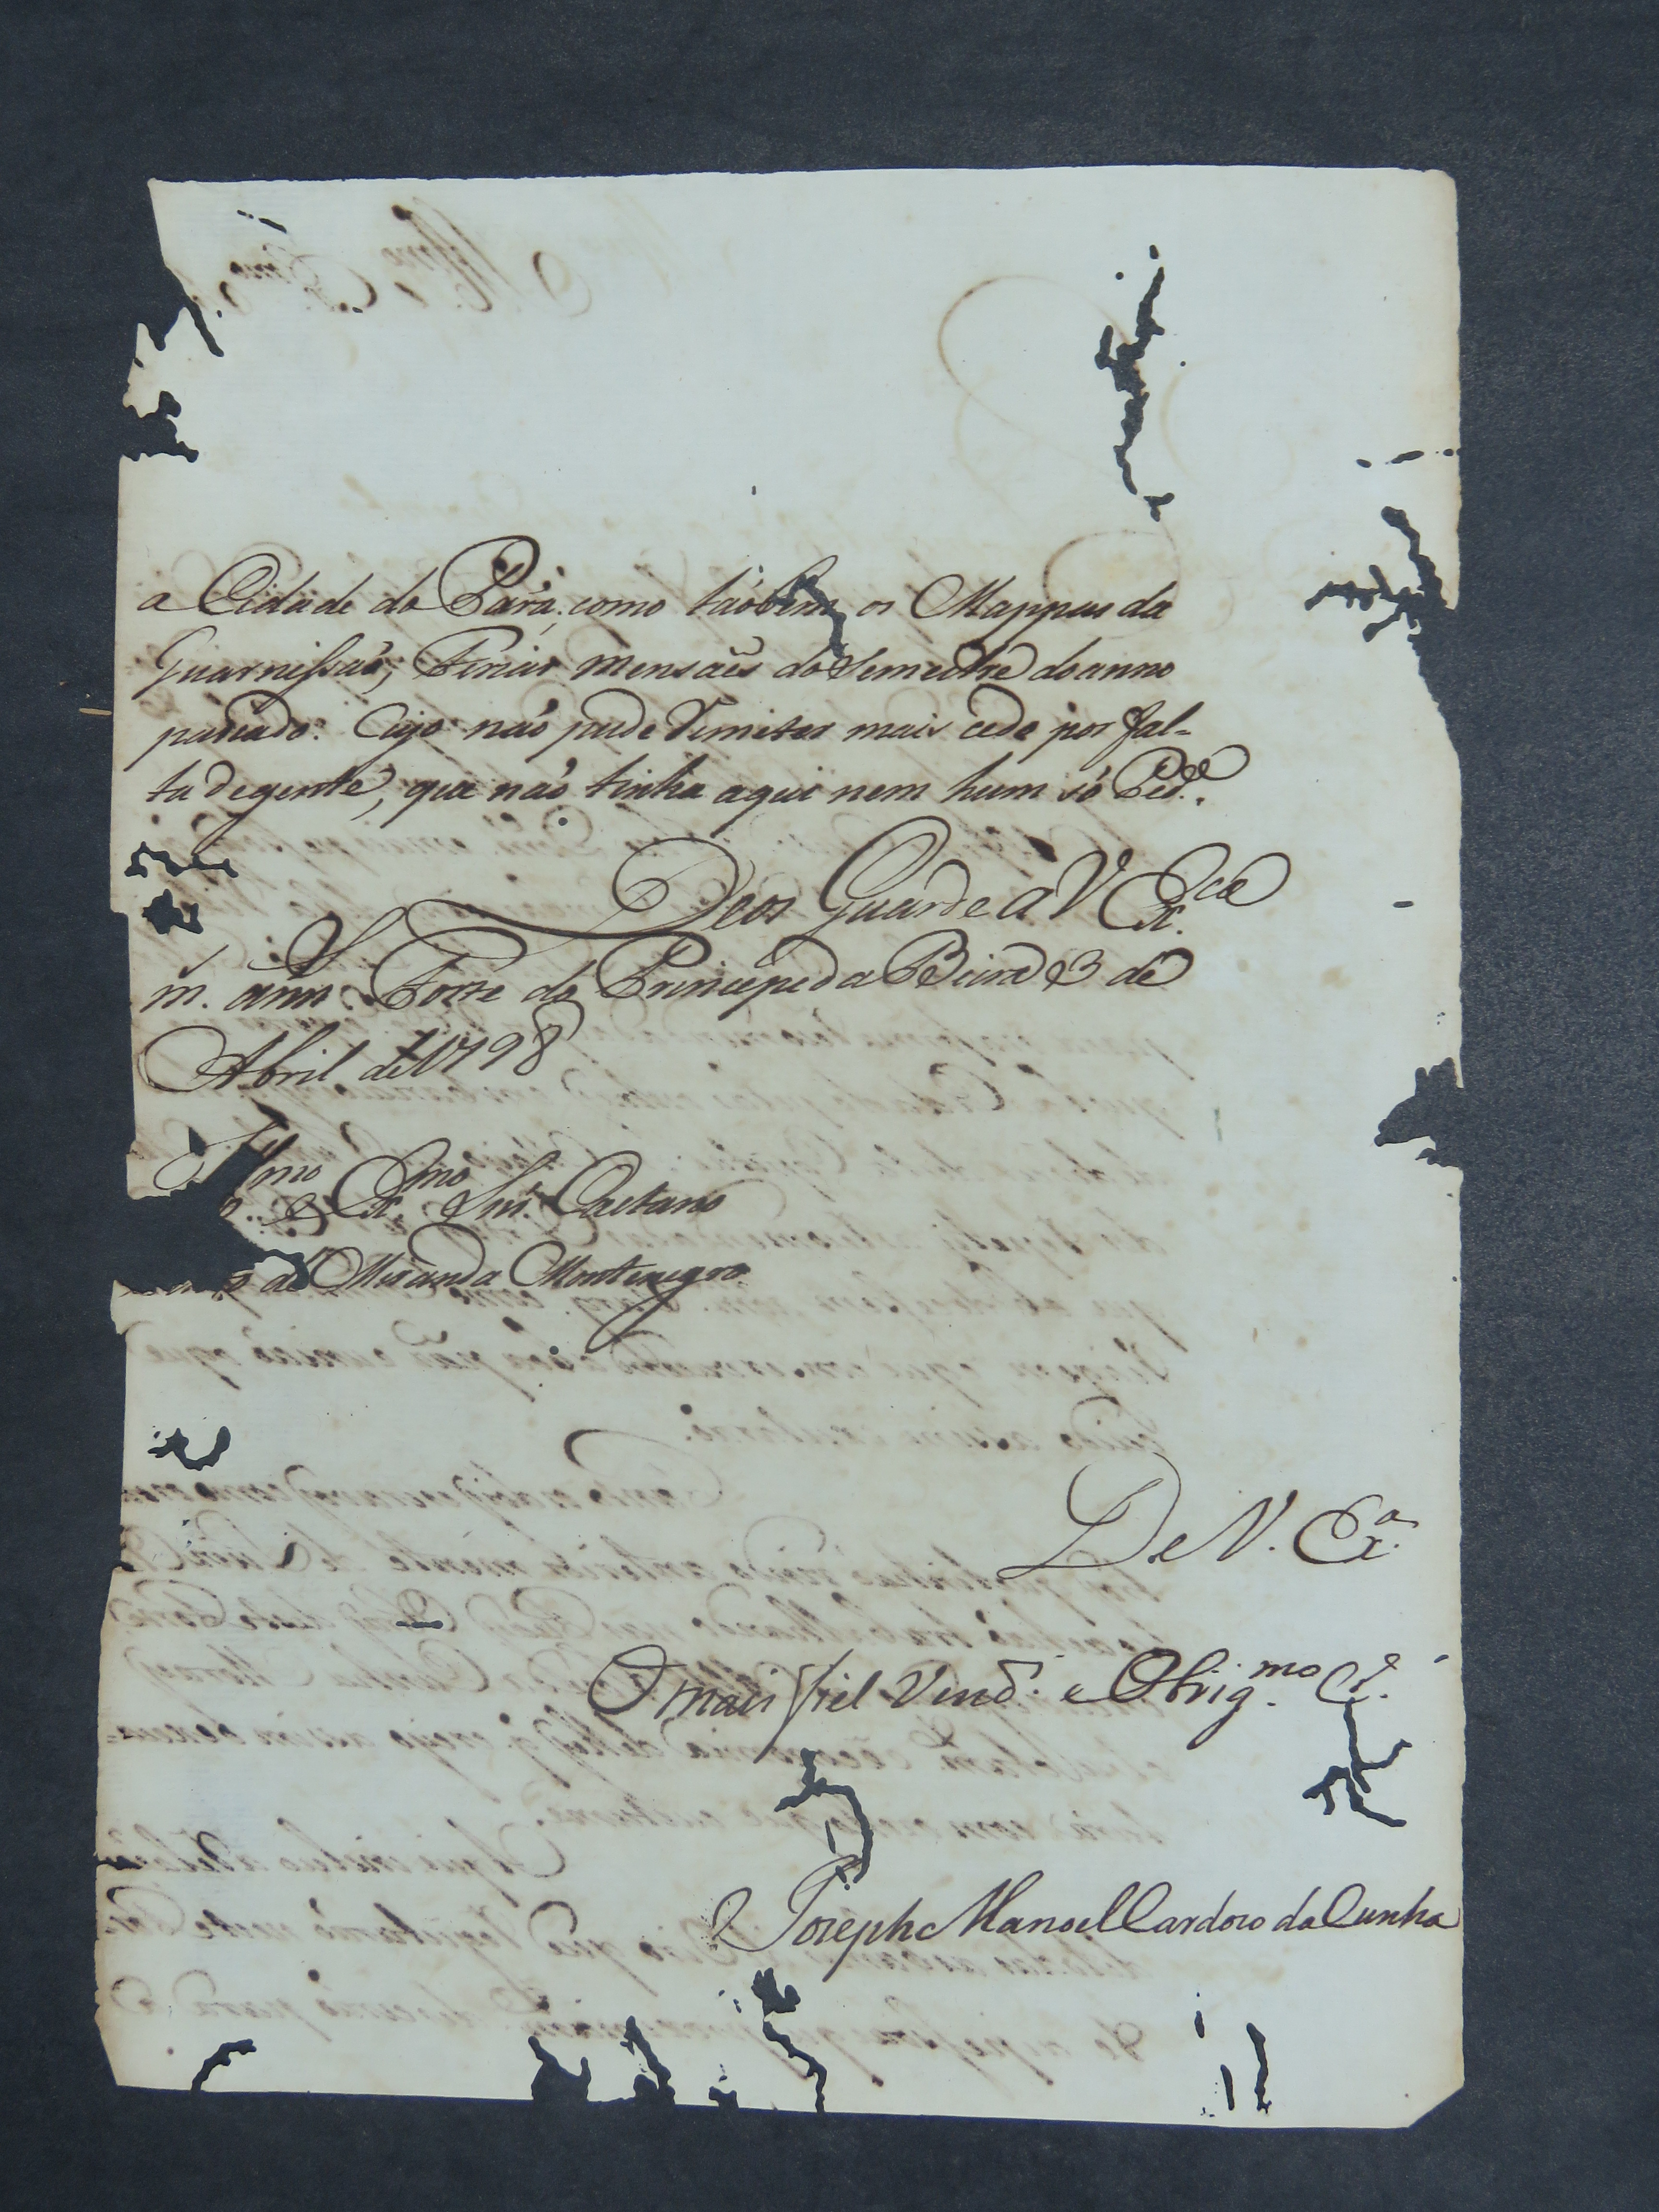 a Cidade do Pará, como tãobem os Mappas da
Guarnissaõ, Ferias mensaes do Semestre do anno
passado: Cujo naõ pude Remiter mais cedo por fal-
ta de gente, que naõ tinha aqui nem hum só Ped.e
Deos Guarde a V. Ex.cia
m. ann. Forte do Principe da Beira 3 de
Abril de 1798
Ill.mo e Ex.mo Snr. Caetano
de Miranda Montenegro
De V. Ex.a
O mais fiel Vened.or e Obrig.mo C.
Joseph Manoel Cardozo da Cunha